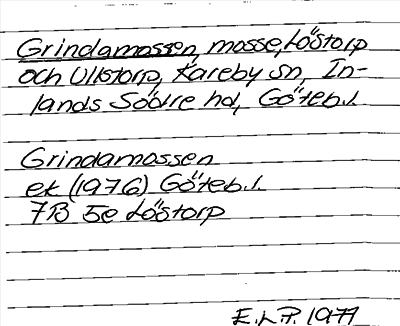 Grindamossen, mosse, Löstorp
och Ulkstorp, Kareby sn, In-
lands Södre hd, Göteb.l.
Grindamossen
ek (1976) Göteb.l.
7B 5e Löstorp
E.L.P. 1977